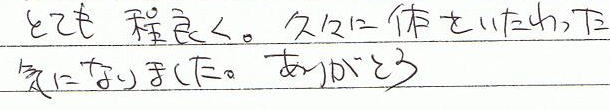 とても 程良く。久々に体をいたわった
気になりました。ありがとう